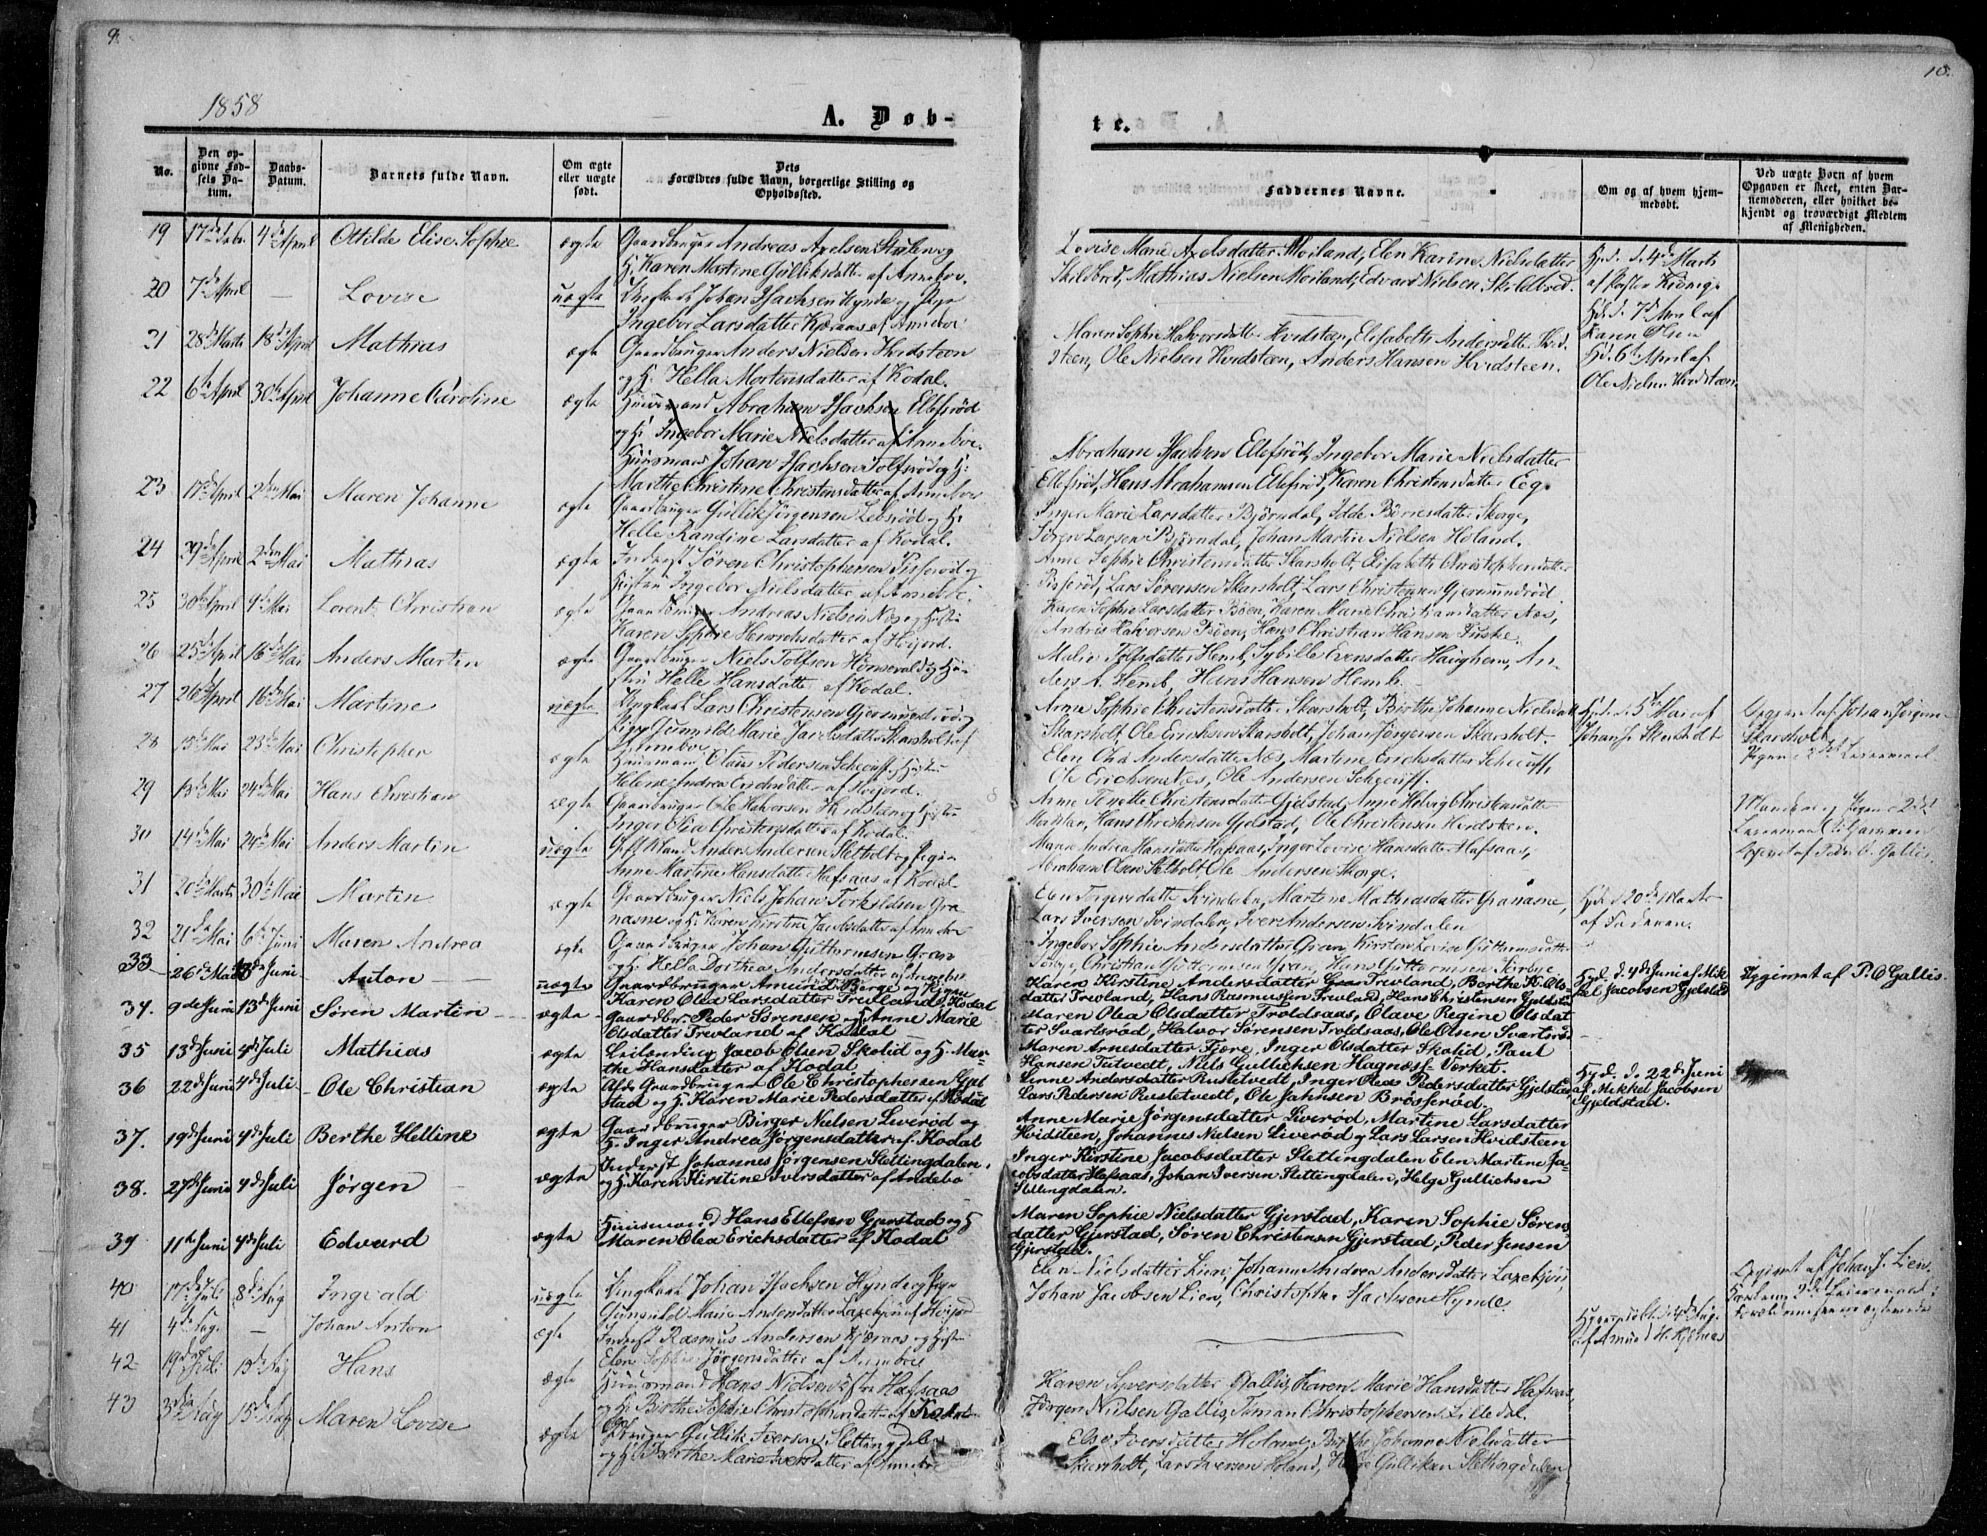 9.
1858
A. Døb-
No.
Den op-
givne Fød-
sels Da-
tum.
Daabs-
Datum.
Barnets fulde Navn.
Om ægte
eller uægte
født.
Dets
Forældres fulde Navn, borgerlige Stilling og
Opholdssted.
19 17de Febr. 4de April Ottilde Elise Sophie ægte Gaardbruger Andreas Axelsen
H. Karen Martine Gulliksdatter af Anneboe.
20 7de April — Lovise uægte Ungkarl Johan Isachsen Hynde og Pige
Ingebor Larsdatter Kjæraas af Anneboe
21 28de Marts 18de April Mathias ægte Gaardbruger Anders Nielsen Hvidsteen
og H. Hella Mortensdatter af Kodal.
22 6te April 30te April Johanne Caroline ægte Huusmand Abraham Isachsen Ellefsrød
og H. Ingebor Marie Nielsdatter af Anneboe.
Huusmand Johan Isachsen Tolfsrød og H:
Marthe Christine Christensdatter af Anneboe
23 17de April 2den Mai Maren Johanne ægte Gaardbruger Gullik Jörgensen og H.
Helle Randine Larsdatter af Kodal.
24 29de April 2den Mai Mathias ægte Inderst Søren Christophersen Pisserød og
Hustru Ingebor Nielsdatter af Anneboe.
25 30te April 9de Mai Lorents Christian ægte Gaardbruger Andreas Nielsen Næs og Hustru
Karen Sophie Henrichsdatter af Höijord.
26 25de April 16de Mai Anders Martin ægte Gaardbruger Niels Tolfsen og Hu-
stru Helle Hansdatter af Kodal.
27 26de April 16de Mai Martine uægte Ungkarl Lars Christensen Gjermundrød og
Pige Gunnild Marie Skarsholt af
Anneboe
28 15de Mai 23de Mai Christopher ægte Huusmand Claus Pedersen og Hustru
Helene Andrea Erichsdatter af Höijord.
29 13de Mai 24de Mai Hans Christian ægte Gaardbruger Ole Halvorsen Hvidsteen og Hustru
Inger Olia Christensdatter af Kodal.
30 14de Mai 24de Mai Anders Martin uægte Gift Mand Anders Andersen Sletholt og Pigen
Anne Martine Hansdatter Hafsaas af Kodal
31 20de Marts 30te Mai Martin ægte Gaardbruger Niels Johan Torkildsen Gra-
nasne og H. Karen Kirstine Jacobsdatter af Anneboe
32 21de Mai 6te Juni Maren Andrea ægte Gaardbruger Johan Guttormsen Gran
og H. Hella Dorthea Andersdatter af Anneboe
33 26de Mai Juni Anton uægte Gaardbruger Amund Berge og Pigen
Karen Olea Larsdatter Trevland af Kodal
34. 9de Juni 13de Juni Søren Martin ægte Gaardbr. Peder Sørensen og Anne Marie
Olsdatter Trevland af Kodal
35 13de Juni 4de Juli Mathias ægte Leilænding Jacob Olsen Skolid og H. Mar-
the Hansdatter af Kodal
36 22de Juni 4de Juli Ole Christian ægte Afd. Gaardbruger Ole Christophersen Gjel-
stad og H. Karen Marie Pedersdatter af Kodal
37. 19de Juni 4de Juli Berthe Helline ægte Gaardbruger Birger Nielsen Liverød og
H. Inger Andrea Jørgensdatter af Kodal
38. 27de Juni 4de Juli Jørgen ægte Inderst Johannes Jørgensen Slettingdalen,
og H. Karen Kirstine Iversdatter af Andebo
39 11te Juni 4de Juli Edvard ægte Huusmand Hans Ellefsen Gjerstad og H
Maren Olea Erichsdatter af Kodal
40 17de Juli 8de Aug Ingvald uægte Ungkarl Johan Isachsen Hynde og Pige
Gunnild Marie Andersdatter af Höijord
41 4de Aug. — Johan Anton ægte Inderst Rasmus Andersen Kjæraas og Hustru
Elen Sophie Jørgensdatter af Anneboe
42 19de Juli 15de Aug Hans ægte Huusmand Hans Nielsen Hafsaas
og H. Birthe Sophie Christophersdatter af Kodal
43 3die Aug 15de Aug Maren Lovise ægte Gbruger Gullik Iversen Slettingdalen
og H. Berthe Marie Iversdatter af Anneboe
10.
te.
Faddernes Navne.
Om og af hvem hjem-
medøbt.
Ved uægte Børn af hvem
Opgaven er skeet, enten Bar-
nemoderen, eller hvilket be-
kjendt og troværdigt Medlem
af Menigheden.
Lovise Marie Axelsdatter Moiland, Elen Karine Nielsdatter
Skildbred, Mathias Nielsen Moiland, Edvard Nielsen Skildbred.
Hjd. d. 4de Marts
af Pastor
Hjd. d. 7de April af
Karen Olsen
Maren Sophie Halvorsdatter Hvidsteen, Elisabeth Andersdatter Hvid-
steen, Ole Nielsen Hvidsteen, Anders Hansen Hvidsteen.
Hjd. 6te April af
Ole Nielsen Hvidsteen
Abraham Isachsen Ellefsrød, Ingebor Marie Nielsdatter
Ellefsrød, Hans Abrahamsen Ellefsrød, Karen Christensdatter Eeg.
Inger Marie Larsdatter Bjørndal, Idde Børresdatter Skorge,
Søren Larsen Bjørndal, Johan Martin Nielsen Holand.
Anne Sophie Christensdatter Skarsholt, Elisabeth Christophersdatter
Pisserød, Lars Sörensen Skarsholt, Lars Christensen Gjermundrød.
Karen Sophie Larsdatter Böen, Karen Marie Christiansdatter Næs,
Andreas Halvorsen Böen, Hans Christian Hansen Fuske.
Malie Tolfsdatter Hemb, Sybille Evensdatter Haughem, An-
ders A. Hemb, Hans Hansen Hemb.
Anne Sophie Christensdatter Skarsholt, Birthe Johanne Nielsdatter
Skarsholt, Ole Erichsen Skarsholt, Johan Jørgensen Skarsholt.
Hjd. d. 5te Mai af
Johan J. Skarsholt
Opgivet af Johan Jörgen-
Skarsholt.
Pigens 2det Leiermaal.
Elen Olia Andersdatter Næs, Martine Erichsdatter
Ole Erichsen Næs, Ole Andersen
Anne Tenette Christensdatter Gjelstad, Anne Helvig Christensdatter
Hans Christensen Gjelstad, Ole Christensen Hvidsteen.
Mandens og Pigens 2det
Leiermaal
Opgivet af Peder O. Gallis
Maren Andrea Hansdatter Hafsaas, Inger Lovise Hansdatter Hafsaas,
Abraham Olsen Sletholt, Ole Andersen Skorge.
Elen Svindalen, Martine Mathiasdatter Granasne,
Lars Iversen Svindalen, Iver Andersen Svindalen
Hjd. 20de Marts
af Faderen.
Ingebor Sophie Andersdatter Gran, Kirsten Lovise Guttormsdatter
Christian Guttormsen Gran, Hans Guttormsen
Karen Kirstine Andersdatter Trevland, Berthe K. Ols-
datter Trevland, Hans Rasmussen Trevland, Hans Christensen Gjelstad
Hjd. d. 4de Juni af Mik-
kel Jacobsen Gjelstad
Opgivet af P. O Gallis.
Maren Olea Olsdatter Troldsaas, Olave Regine Olsdat-
ter Svartsrød, Halvor Sørensen Troldsaas, Ole Olsen Svartsrød
Maren Arnesdatter Fjære, Inger Olsdatter Skolid, Paul
Hansen Tutvedt, Niels Gullichsen Hagnæss Verket.
Linne Andersdatter Rustetvedt, Inger Olea Pedersdatter Gjelstad
Lars Pedersen Rustetvedt, Ole Jahnsen Brösserød.
Hjd. d. 22de Juni
af Mikkel Jacobsen
Gjeldstad.
Anne Marie Jörgensdatter Liverød, Martine Larsdatter
Hvidsteen, Johannes Nielsen Liverød og Lars Larsen Hvidsteen
Inger Kirstine Jacobsdatter Slettingdalen Elen Martine Ja-
cobsdatter Hafsaas, Johan Iversen Slettingdalen, Helge Gullichsen
Slettingdalen.
Maren Sophie Nielsdatter Gjerstad, Karen Sophie Søren-
datter Gjerstad, Søren Christensen Gjerstad, Peder Jensen
Gjerstad.
Elen Nielsdatter Lien, Johanne Andrea Andersdatter
Johan Jacobsen Lien, Christopher Isachsen Hynde.
Opgivet af Johan J. Lien.
2det Leiermaal
Hjemmedöbt d. 4de Aug.
af Amund H. Kjæraas
Karen Syversdatter Gallis, Karen Marie Hansdatter Hafsaas,
Jörgen Nielsen Gallis, Timan Christophersen Lilledal.
Else Iversdatter Holand, Birthe Johanne Nielsdatter
Skiersholt, Lars Iversen Holand, Helge Gulliksen Slettingdalen